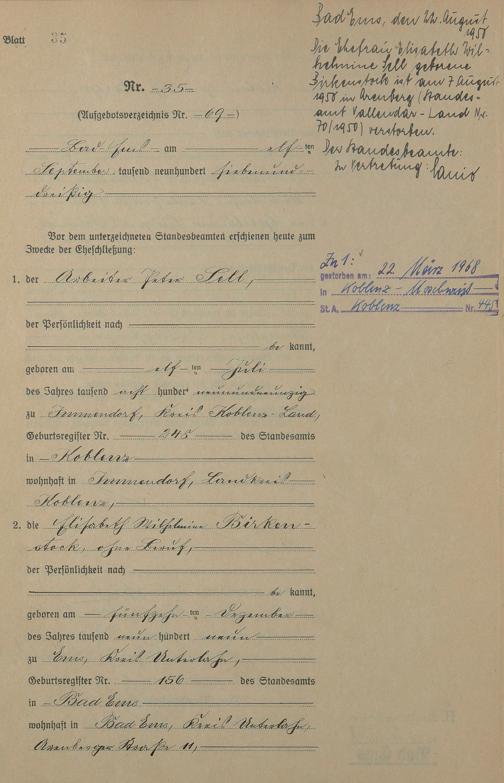 Blatt 35
Bad Ems, den 22. August
1950
Die Ehefrau Elisabeth Wil-
helmine Sell geborene
Birkenstock ist am 7 August
1950 in Arenberg (Standes-
amt Vallendar-Land Nr.
70/1950) verstorben.
Der Standesbeamte:
In Vertretung:
Nr. 35
(Aufgebotsverzeichnis Nr. 69)
Bad Ems am elf ten
September tausend neunhundert siebenund-
dreißig
Vor dem unterzeichneten Standesbeamten erschienen heute zum
Zwecke der Eheschließung:
1. der Arbeiter Peter Sell,
Zu 1:
gestorben am: 22 März 1968
in Koblenz-Moselweiß
St.A. Koblenz Nr. 445
der Persönlichkeit nach
be kannt,
geboren am elf ten Juli
des Jahres tausend acht hundert neunundneunzig
zu Immendorf, Kreis Koblenz-Land,
Geburtsregister Nr. 245 des Standesamts
in Koblenz
wohnhaft in Immendorf, Landkreis
Koblenz,
2. die Elisabeth Wilhelmine Birken-
stock, ohne Beruf,
der Persönlichkeit nach
be kannt,
geboren am fünfzehn ten Dezember
des Jahres tausend neun hundert neun
zu Ems, Kreis Unterlahn,
Geburtsregister Nr. 156 des Standesamts
in Bad Ems
wohnhaft in Bad Ems, Kreis Unterlahn,
Arenberger Straße 11,